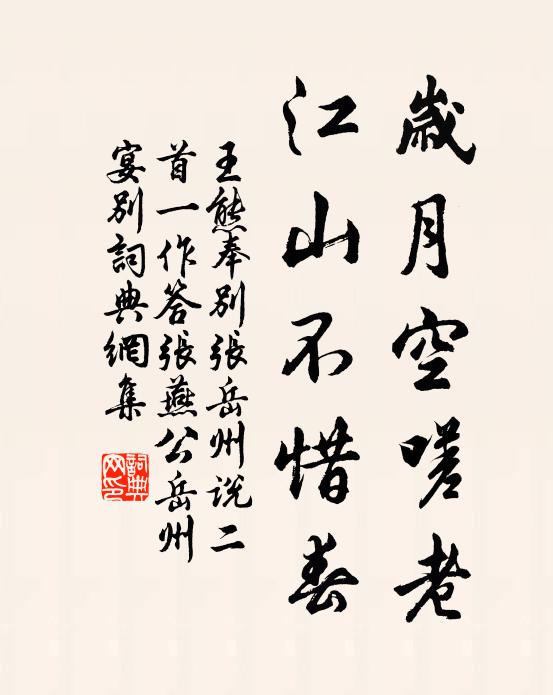 歲月空嗟老
江山不惜春
王熊奉別張岳州說二
首一作答張燕公岳州
宴別詞典網集
詞典網印